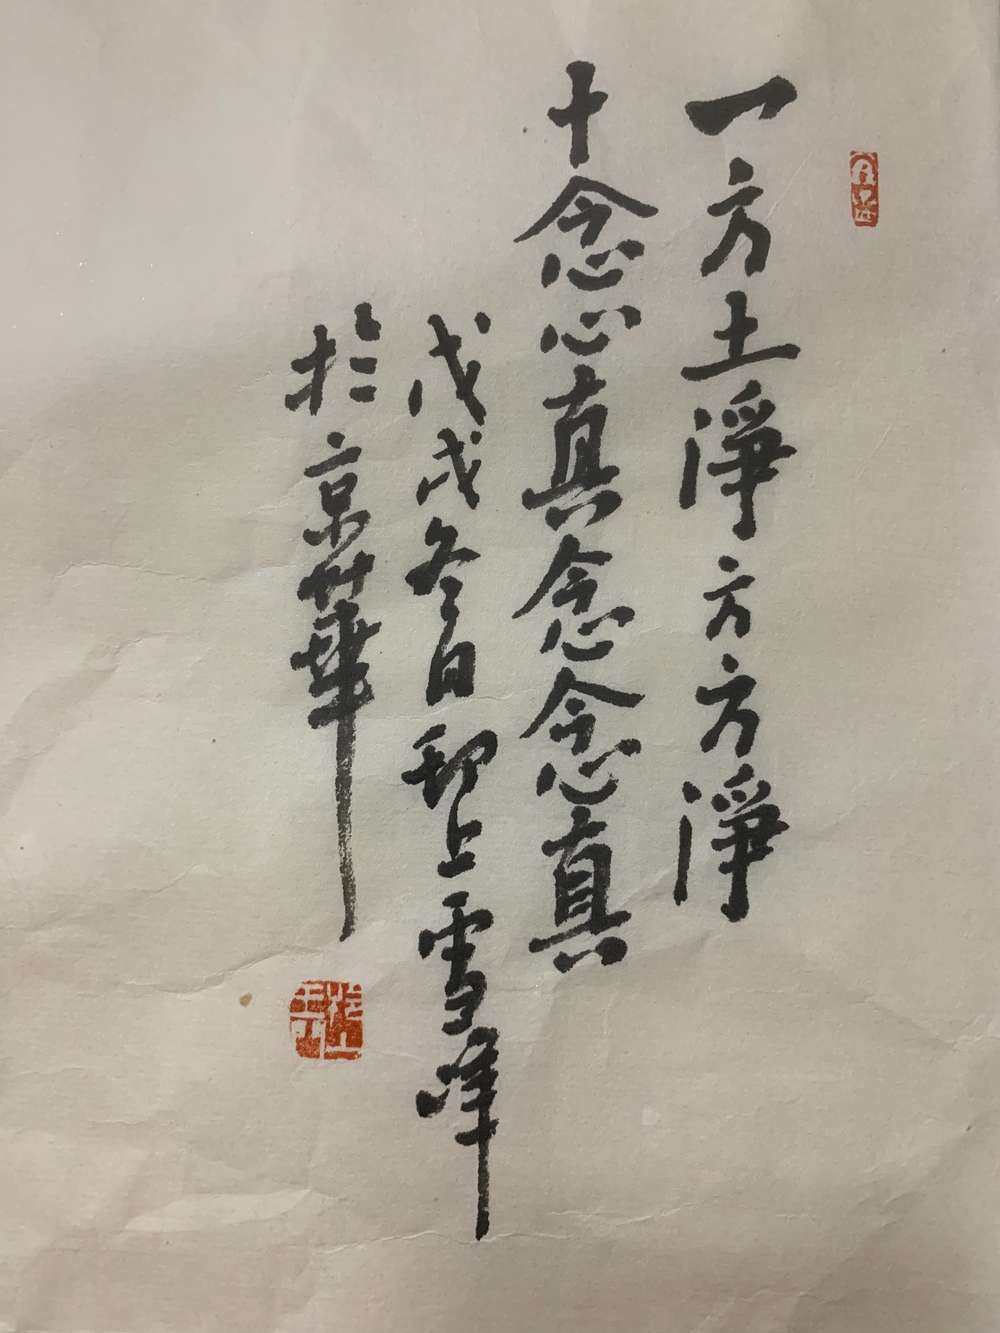 一方土淨方方淨
十念心真念念真
戊戌冬日邳上雪峰
於京華